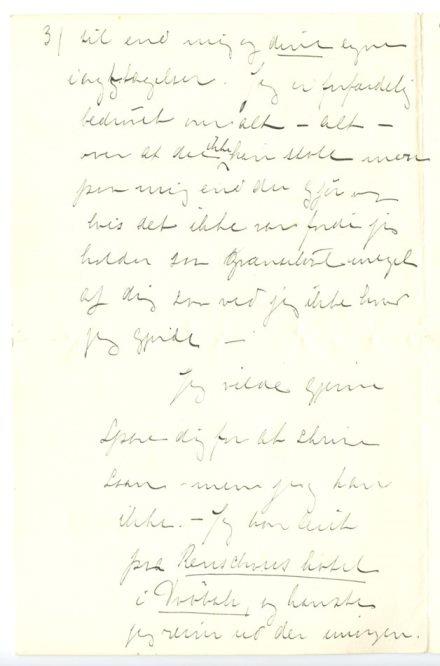 3/ til end mig og dine egne
iagttagelser. Jeg er forfærdelig
bedrøvet over alt – alt –
over at du ikke kan stole mere
paa mig end du gjør og
hvis det ikke var fordi jeg
holder saa grænseløst meget
af dig saa ved jeg ikke hvad
jeg gjorde –
Jeg vilde gjerne
spare dig for at skrive
saan – men jeg kan
ikke. – Jeg har
paa hotel
i og kanske
jeg reiser ud der imorgen.